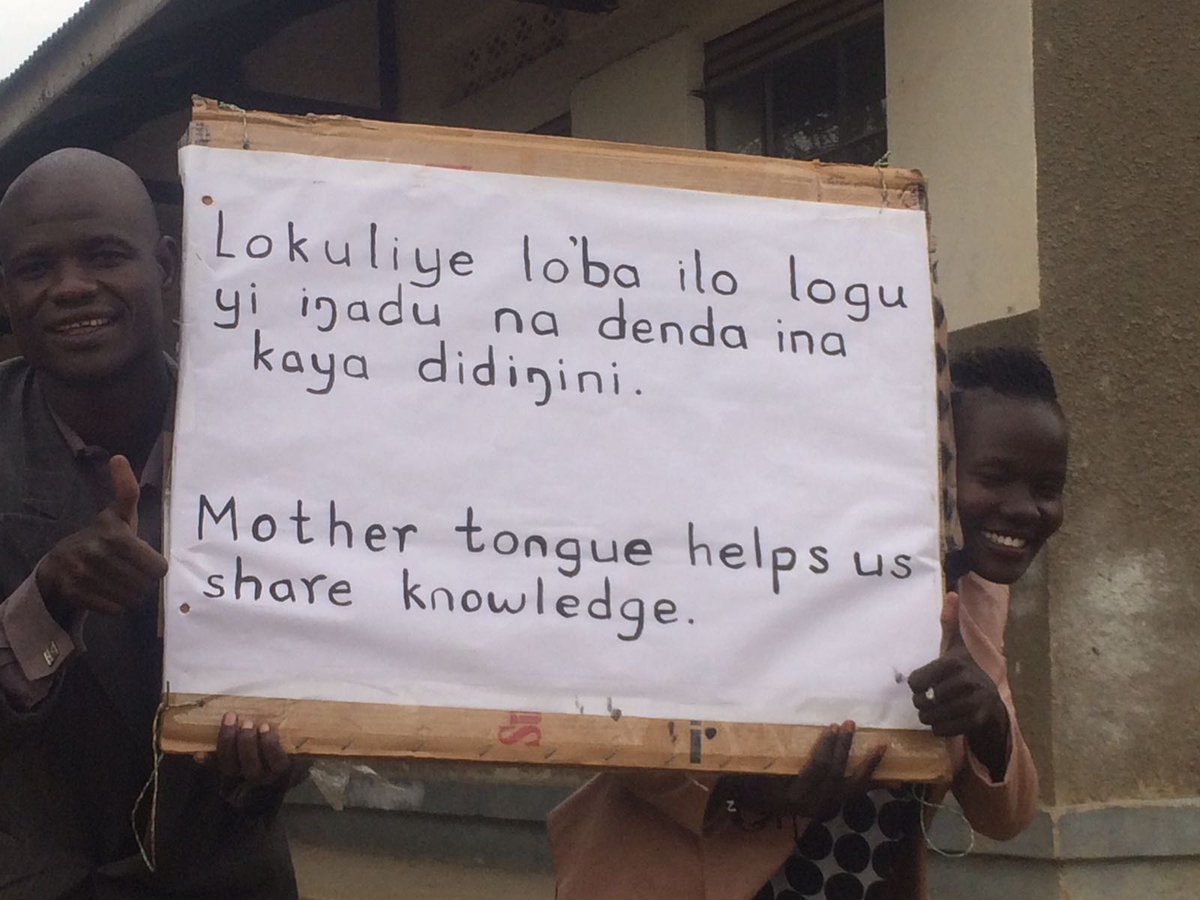 Lokuliye lo'ba ilo logu
yi iŋadu na denda ina
kaya didiŋini.
Mother tongue helps us
share knowledge.